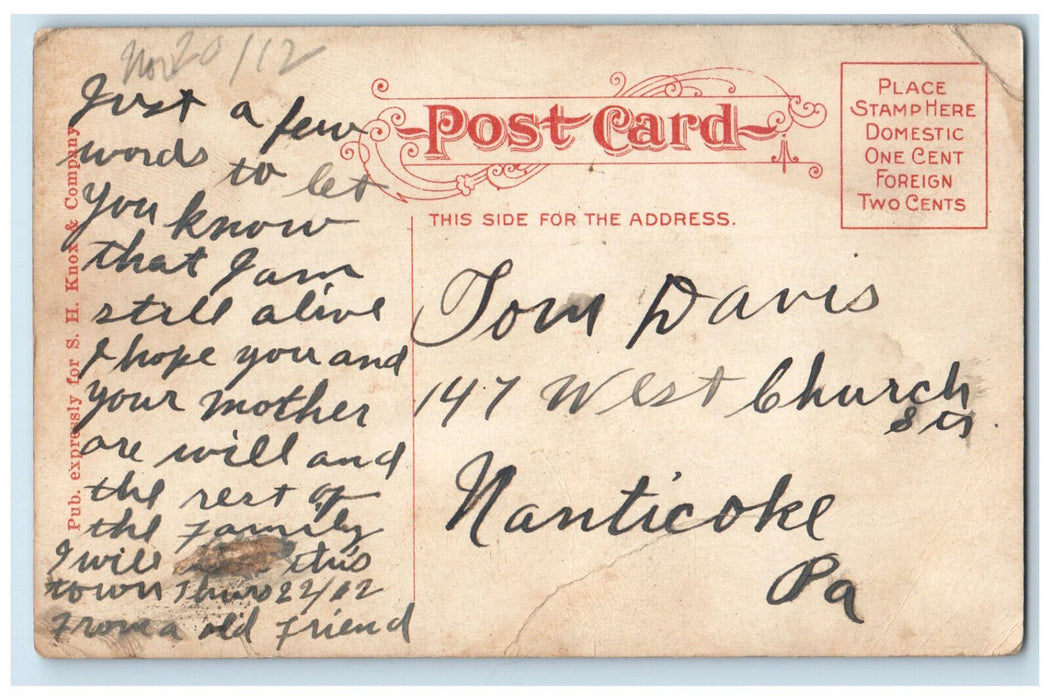 Nov 20/12
Just a few
words to let
you know
that I am
still alive
I hope you and
your mother
are will and
the rest of
the family
I will this
town Thurs 22/12
From a old friend
Pub. expressly for S. H. Knox & Company
Post Card
THIS SIDE FOR THE ADDRESS.
PLACE
STAMP HERE
DOMESTIC
ONE CENT
FOREIGN
TWO CENTS
Tom Davis
147 West Church
Sts.
Nanticoke
Pa